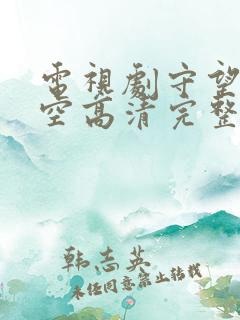 電視劇守望
空高清完整
韩志英
未经同意禁止转载